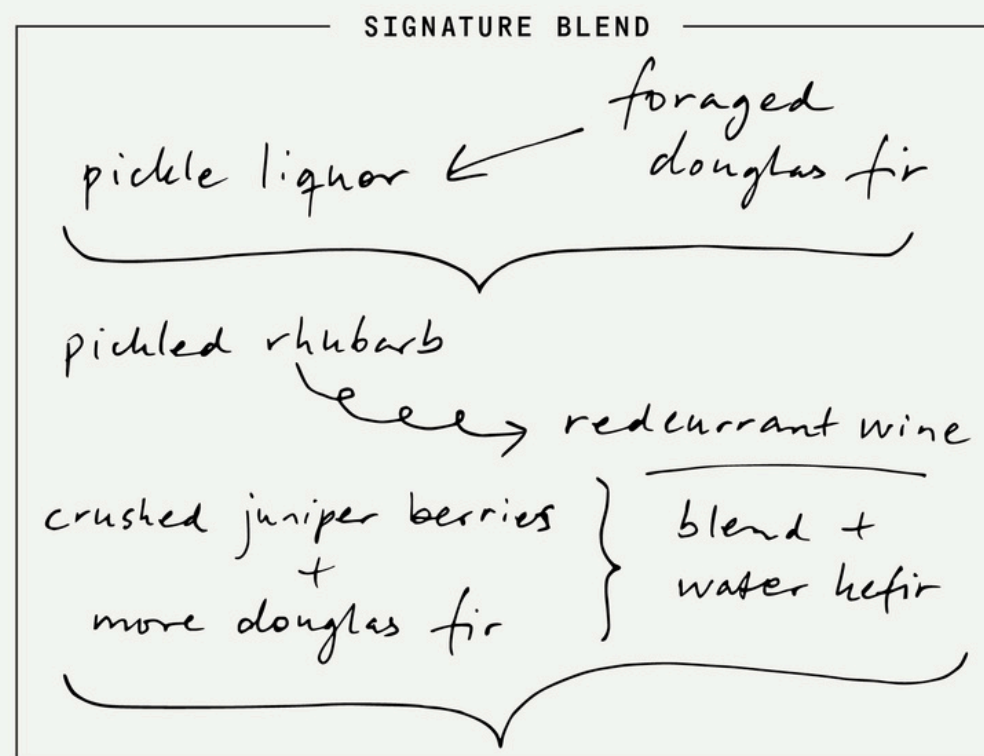 SIGNATURE BLEND
foraged
pickle liquor
douglas fir
pickled rhubarb
redcurrant wine
crushed juniper berries
+
more douglas fir
blend +
water kefir